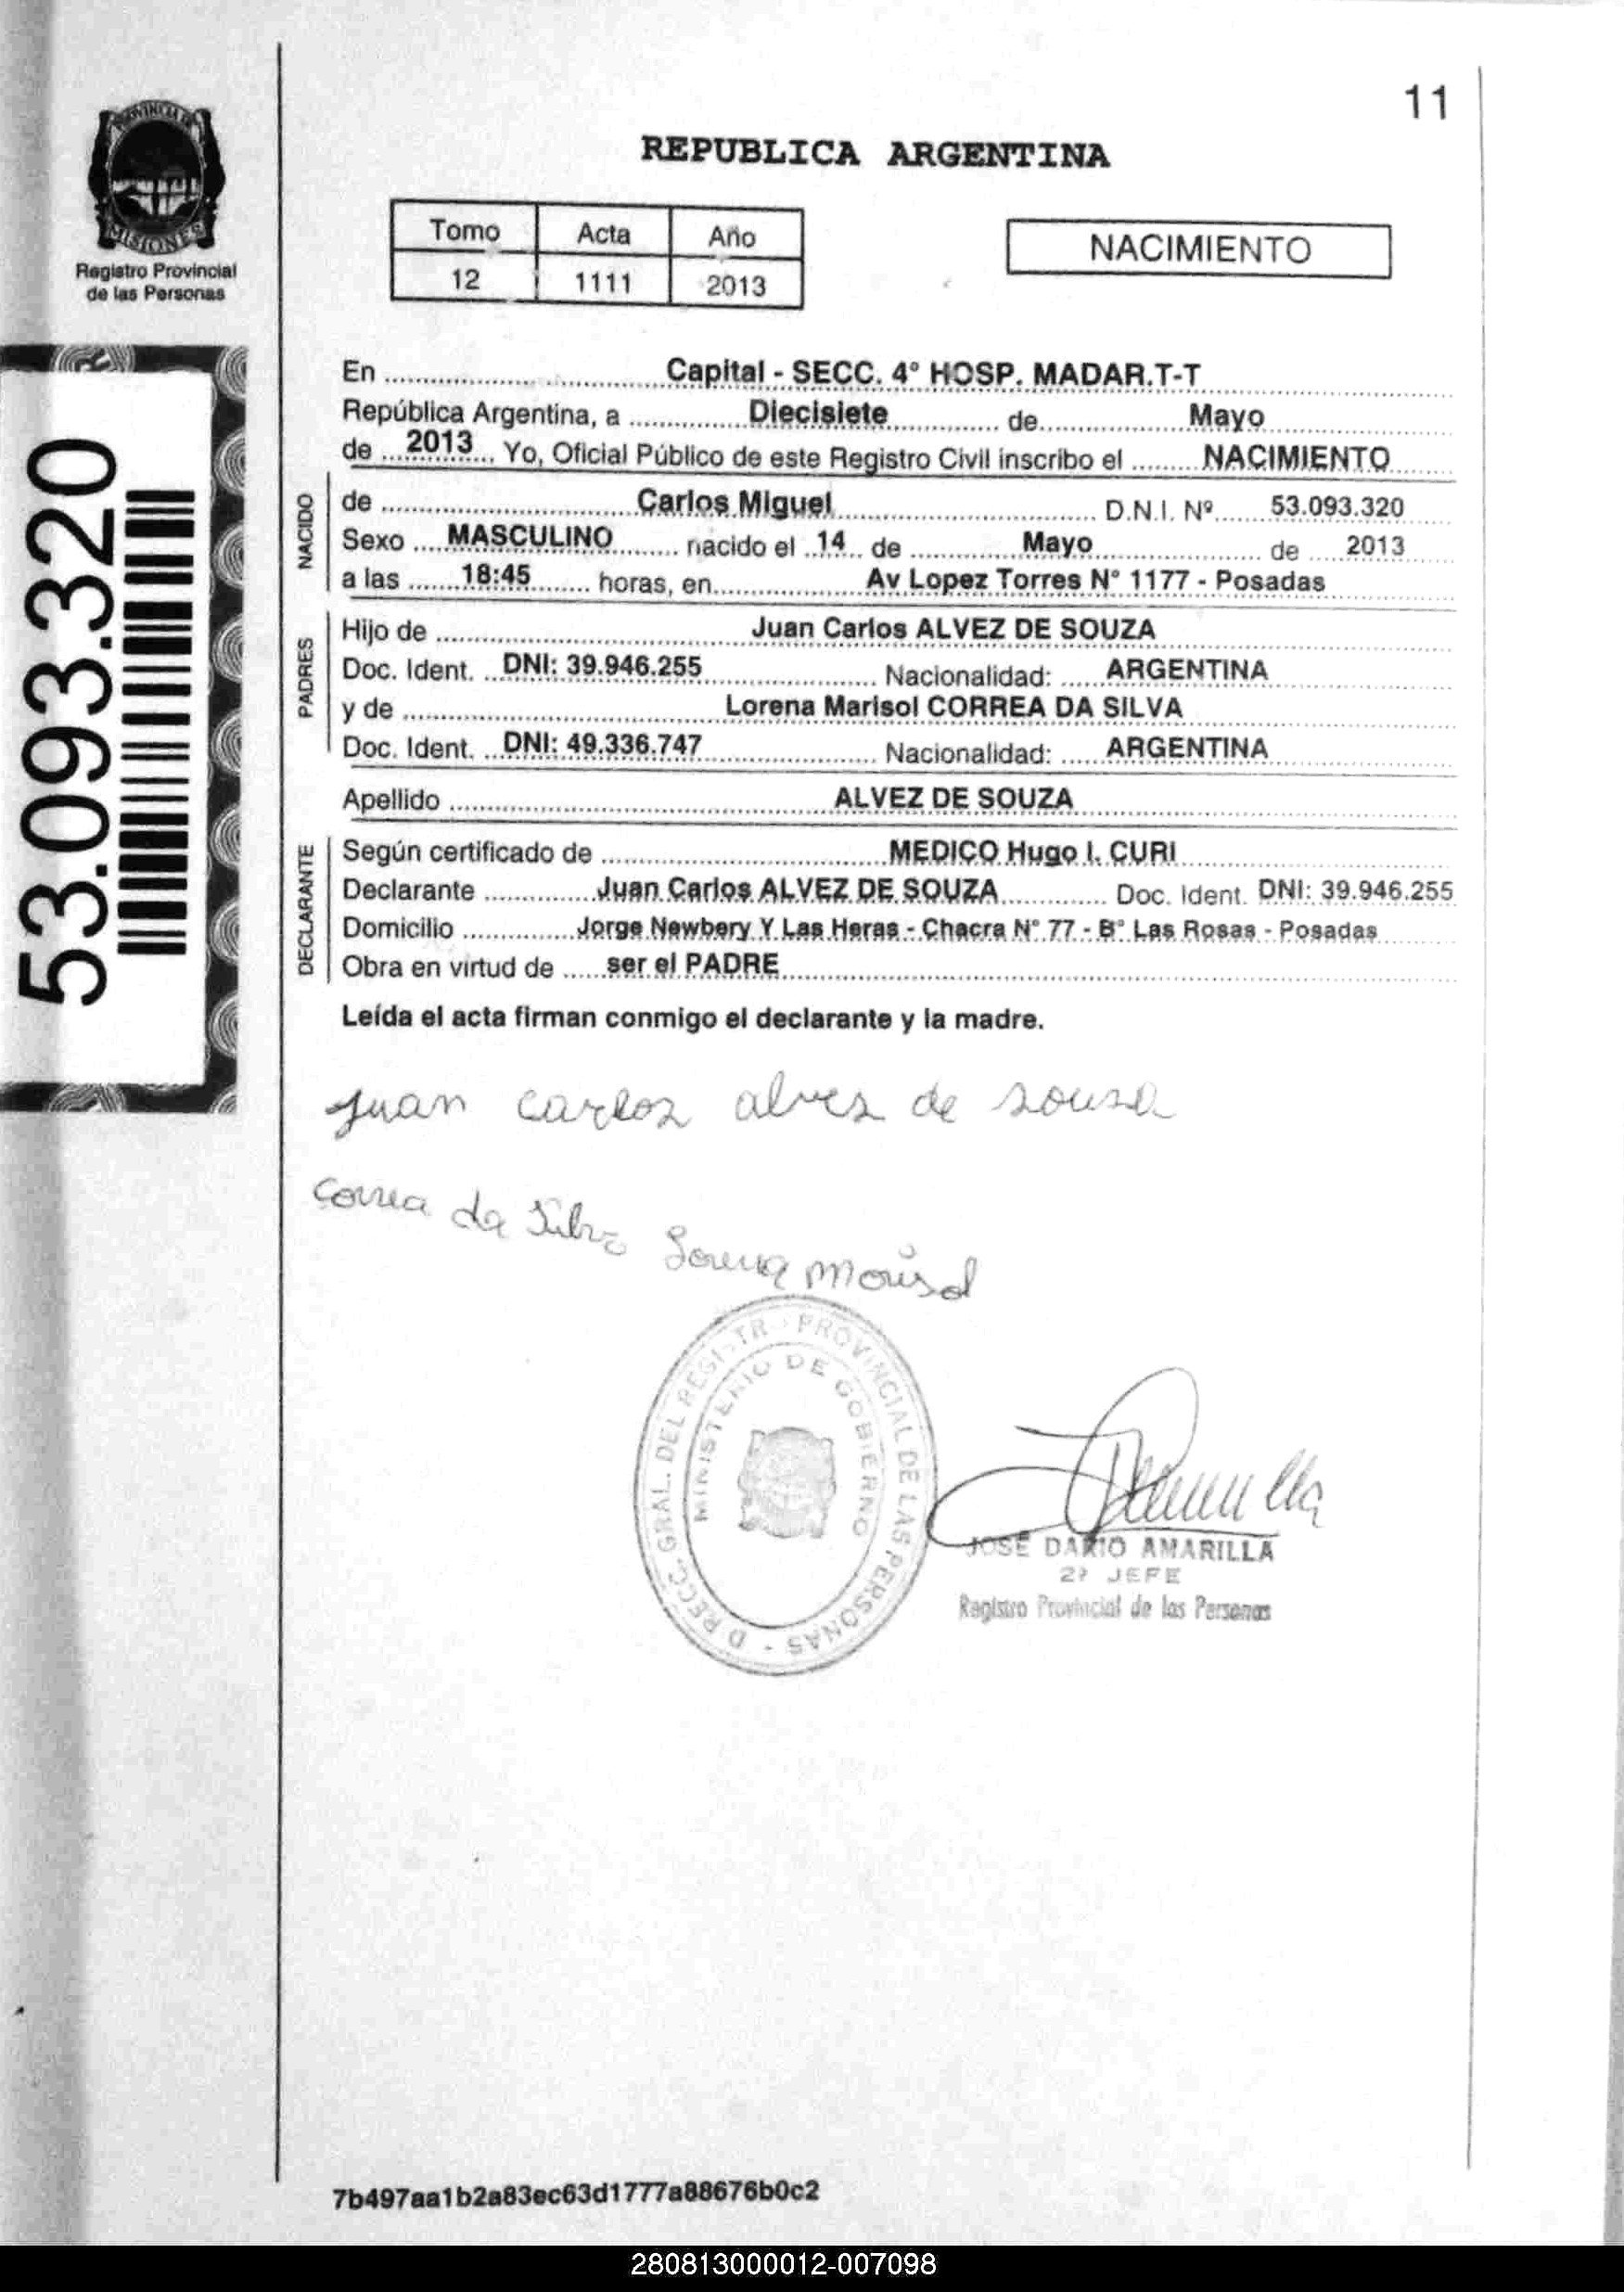 11
REPUBLICA ARGENTINA
PROVINCIA DE
MISIONES
Registro Provincial
de las Personas
Tomo Acta Año
12 1111 2013
NACIMIENTO
53.093.320
En Capital - SECC. 4° HOSP. MADAR.T-T
República Argentina, a Diecisiete de Mayo
de 2013 Yo, Oficial Público de este Registro Civil inscribo el NACIMIENTO
NACIDO
de Carlos Miguel D.N.I. Nº 53.093.320
Sexo MASCULINO nacido el 14 de Mayo de 2013
a las 18:45 horas, en Av Lopez Torres N° 1177 - Posadas
PADRES
Hijo de Juan Carlos ALVEZ DE SOUZA
Doc. Ident. DNI: 39.946.255 Nacionalidad: ARGENTINA
y de Lorena Marisol CORREA DA SILVA
Doc. Ident. DNI: 49.336.747 Nacionalidad: ARGENTINA
Apellido ALVEZ DE SOUZA
DECLARANTE
Según certificado de MEDICO Hugo I. CURI
Declarante Juan Carlos ALVEZ DE SOUZA Doc. Ident. DNI: 39.946.255
Domicilio Jorge Newbery Y Las Heras - Chacra N° 77 - B° Las Rosas - Posadas
Obra en virtud de ser el PADRE
Leída el acta firman conmigo el declarante y la madre.
Juan carlos alves de sousa
Correa da Silva Lorena Marisol
GRAL. DEL REGISTR PROVINCIAL DE LAS PERSONAS
MINISTERIO DE GOBIERNO
JOSE DARIO AMARILLA
2º JEFE
Registro Provincial de las Personas
7b497aa1b2a83ec63d1777a88676b0c2
280813000012-007098